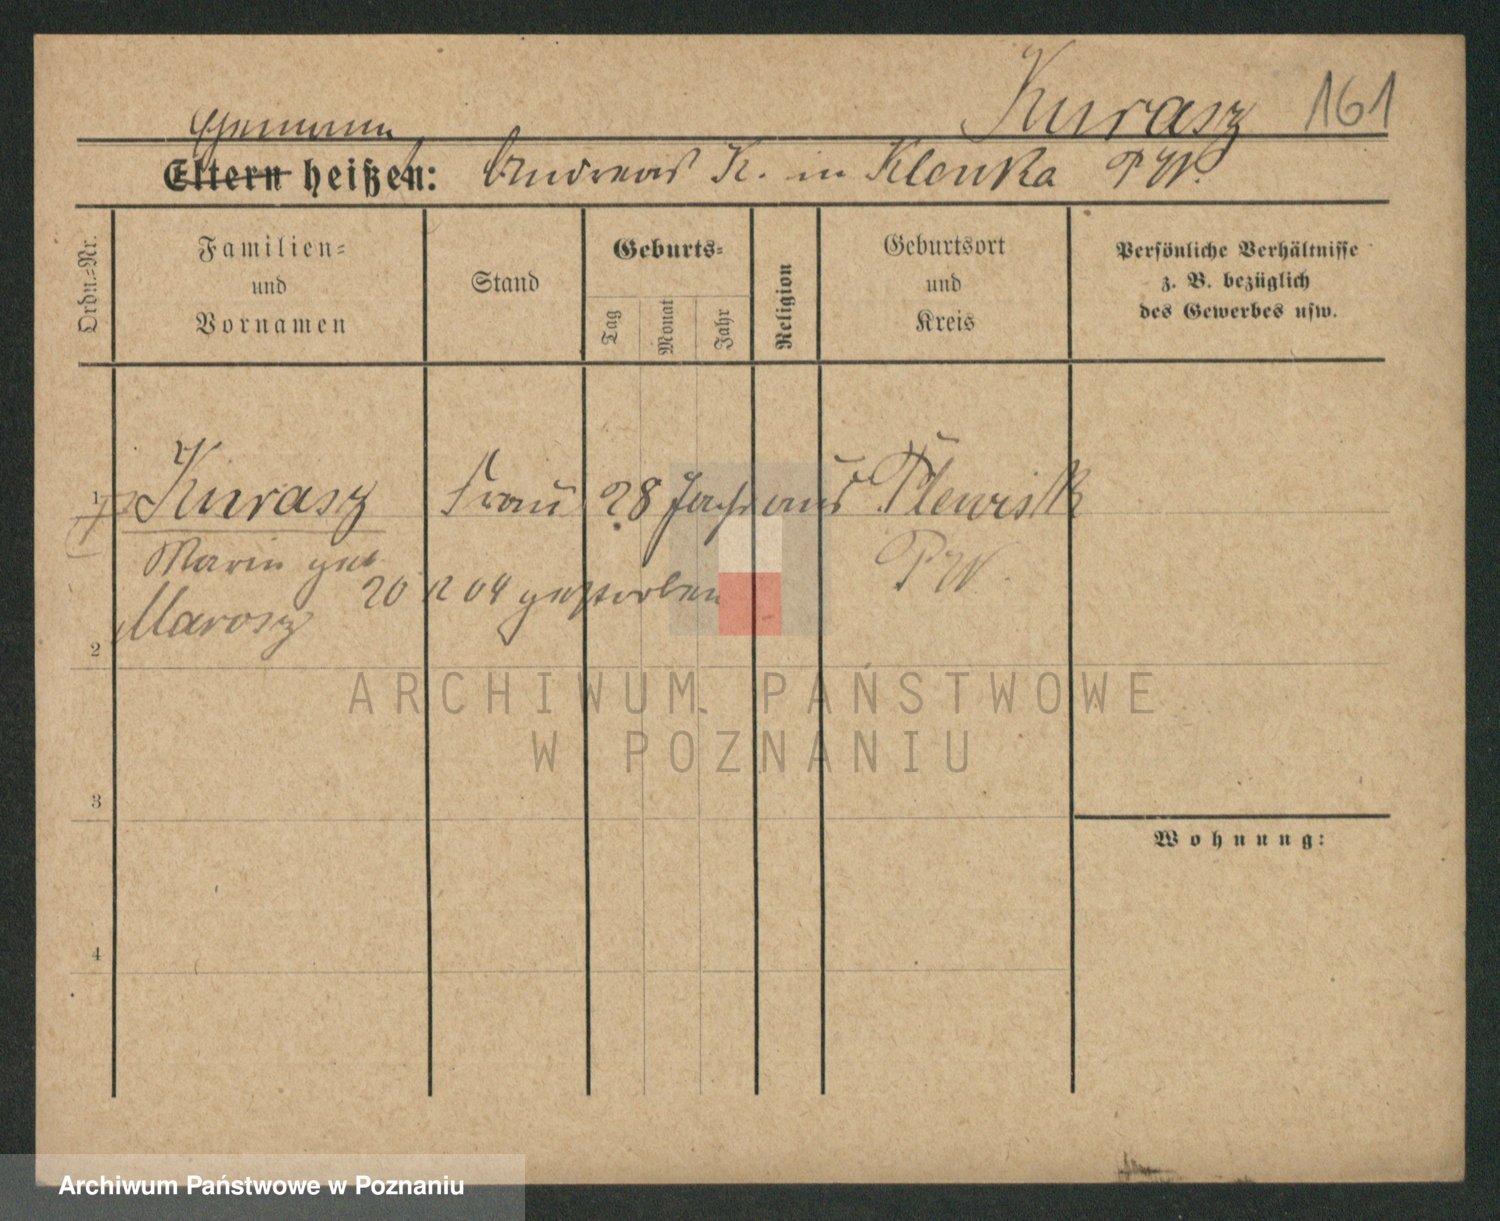 Kurasz 161
Ehemann
Eltern heißen: Andreas K. in Klenka PW.
Ordn.-Nr.
Familien-
und
Vornamen
Stand
Geburts-
Tag
Monat
Jahr
Religion
Geburtsort
und
Kreis
Persönliche Verhältnisse
z. B. bezüglich
des Gewerbes usw.
1 Kurasz Frau 28 Jahr aus Plewisk
Marie geb PW.
Marosz 20 12 04 gestorben
2
ARCHIWUM PAŃSTWOWE
W POZNANIU
3
Wohnung:
4
Archiwum Państwowe w Poznaniu